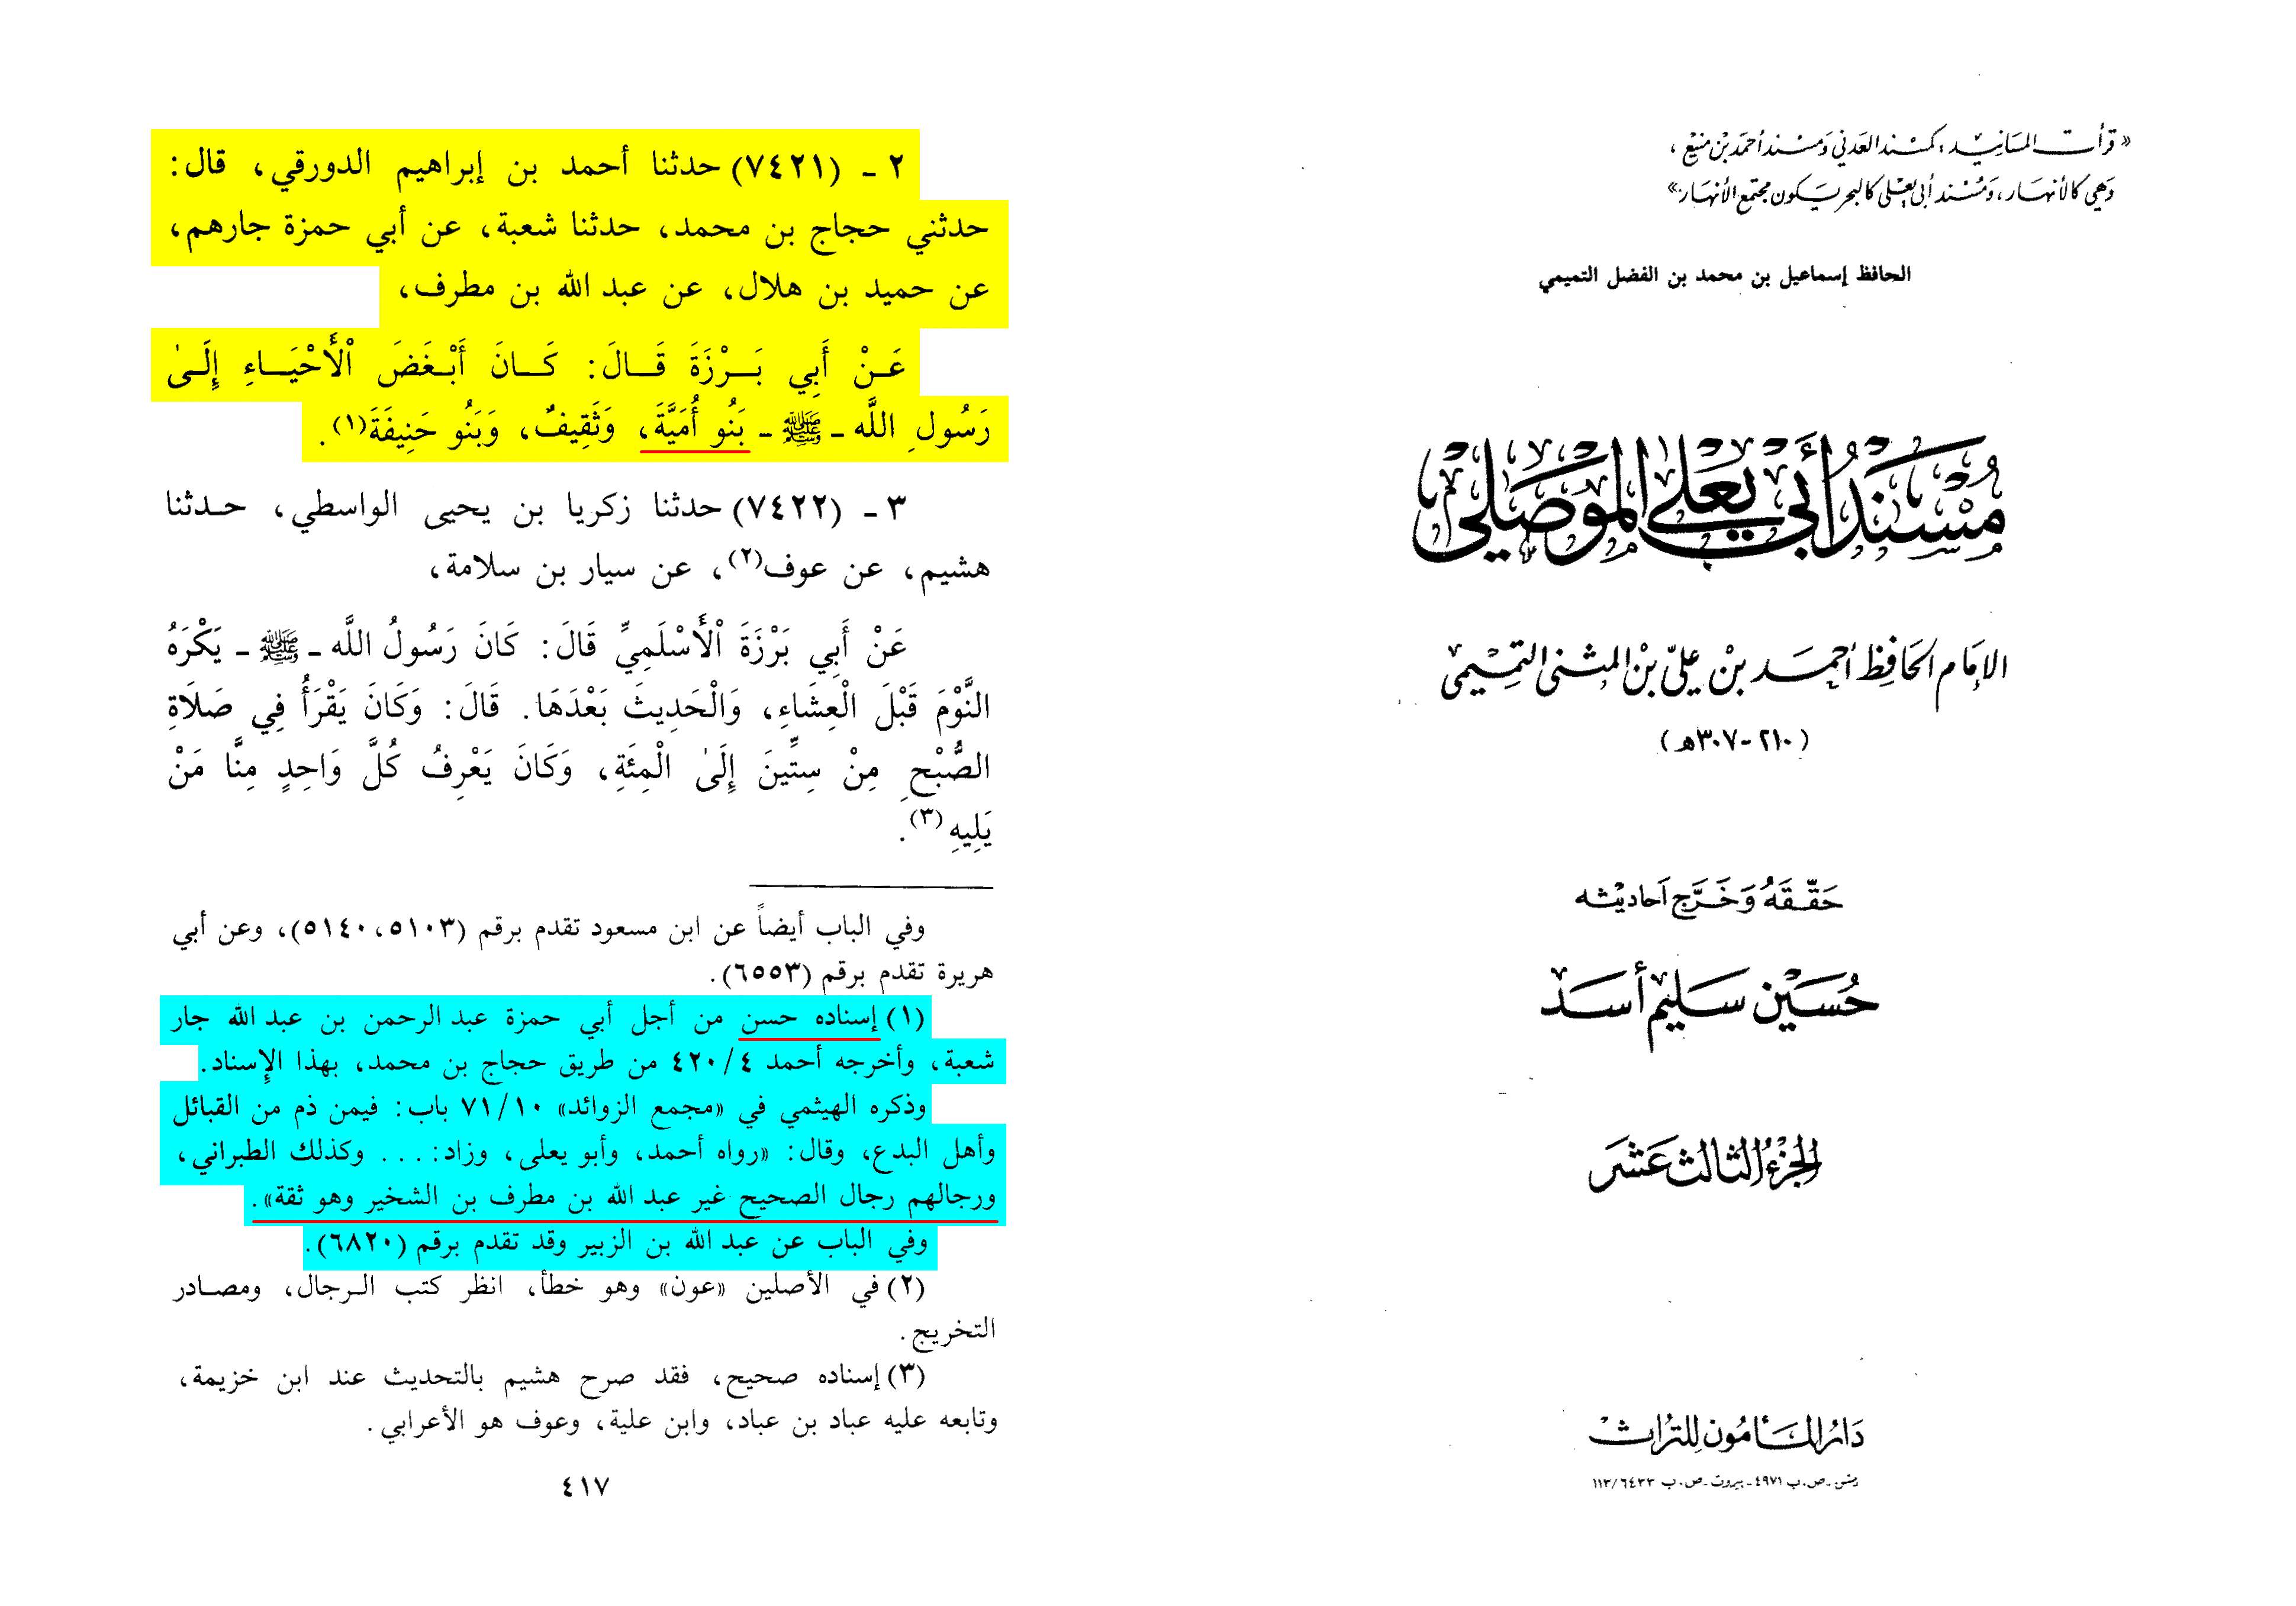 « قرأت المسانيد: كمسند العدني ومسند أحمد بن منيع ،
وهي كالأنهار، ومسند أبي يعلى كالبحر يكون مجتمع الأنهار»
الحافظ إسماعيل بن محمد بن الفضل التميمي
مُسْنَدُ أَبي يَعلى المَوصَلي
الإمَام الحَافِظ أحمَد بنْ عليّ بنْ المثنى التميمي
(٢١٠-٣٠٧هـ)
حَقّقَهُ وَخَرَّج أحاديثه
حُسَيْن سَليم أَسَد
الجزءُ الثالث عَشَر
دَارُ المَأمُون لِلتُراث
دمشق - ص.ب ٤٩٧١ - بيروت - ص.ب ١١٣/٦٤٣٣
٢ - (٧٤٢١) حدثنا أحمد بن إبراهيم الدورقي، قال:
حدثني حجاج بن محمد، حدثنا شعبة، عن أبي حمزة جارهم،
عن حميد بن هلال، عن عبد الله بن مطرف،
عَنْ أَبِي بَرْزَةَ قَالَ: كَانَ أَبْغَضَ الْأَحْيَاءِ إِلَىٰ
رَسُولِ اللَّه - ﷺ - بَنُو أُمَيَّةَ، وَثَقِيفٌ، وَبَنُو حَنِيفَةَ(١).
٣ - (٧٤٢٢) حدثنا زكريا بن يحيى الواسطي، حدثنا
هشيم، عن عوف(٢)، عن سيار بن سلامة،
عَنْ أَبِي بَرْزَةَ الْأَسْلَمِيِّ قَالَ: كَانَ رَسُولُ اللَّه - ﷺ - يَكْرَهُ
النَّوْمَ قَبْلَ الْعِشَاءِ، وَالْحَدِيثَ بَعْدَهَا. قَالَ: وَكَانَ يَقْرَأُ فِي صَلَاةِ
الصُّبْحِ مِنْ سِتِّينَ إِلَىٰ الْمِئَةِ، وَكَانَ يَعْرِفُ كُلَّ وَاحِدٍ مِنَّا مَنْ
يَلِيهِ(٣).
وفي الباب أيضاً عن ابن مسعود تقدم برقم (٥١٠٣، ٥١٤٠)، وعن أبي
هريرة تقدم برقم (٦٥٥٣).
(١) إسناده حسن من أجل أبي حمزة عبد الرحمن بن عبد الله جار
شعبة، وأخرجه أحمد ٤/ ٤٢٠ من طريق حجاج بن محمد، بهذا الإسناد.
وذكره الهيثمي في «مجمع الزوائد» ١٠/ ٧١ باب: فيمن ذم من القبائل
وأهل البدع، وقال: «رواه أحمد، وأبو يعلى، وزاد: . . . وكذلك الطبراني،
ورجالهم رجال الصحيح غير عبد الله بن مطرف بن الشخير وهو ثقة».
وفي الباب عن عبد الله بن الزبير وقد تقدم برقم (٦٨٢٠).
(٢) في الأصلين «عون» وهو خطأ، انظر كتب الرجال، ومصادر
التخريج.
(٣) إسناده صحيح، فقد صرح هشيم بالتحديث عند ابن خزيمة،
وتابعه عليه عباد بن عباد، وابن علية، وعوف هو الأعرابي.
٤١٧